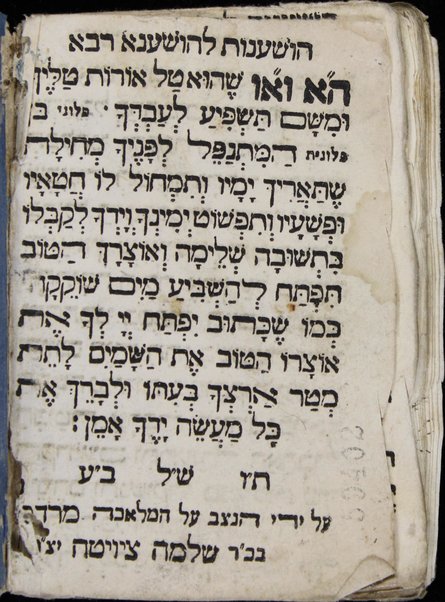 הושענות להושענא רבא
ה״א וא״ו שֶׁהוּא טַל אוֹרוֹת טַלֶּיךָ
וּמִשָּׁם תַּשְׁפִּיעַ לְעַבְדְּךָ פלוני בן
פלונית הַמִּתְנַפֵּל לְפָנֶיךָ מְחִילָה
שֶׁתַּאֲרִיךְ יָמָיו וְתִמְחוֹל לוֹ חֲטָאָיו
וּפְשָׁעָיו וְתִפְשׁוֹט יְמִינְךָ וְיָדְךָ לְקַבְּלוֹ
בִּתְשׁוּבָה שְׁלֵימָה וְאוֹצָרְךָ הַטּוֹב
תִּפְתַּח לְהַשְׂבִּיעַ מַיִם שׁוֹקֵקָה
כְּמוֹ שֶׁכָּתוּב יִפְתַּח יְיָ לְךָ אֶת
אוֹצָרוֹ הַטּוֹב אֶת הַשָּׁמַיִם לָתֵת
מְטַר אַרְצְךָ בְּעִתּוֹ וּלְבָרֵךְ אֶת
כָּל מַעֲשֵׂה יָדֶךָ אָמֵן:
תז של ביע
על ידי הנצב על המלאכה מרדכי
בכ״ר שלמה ציויטה יצ״ו